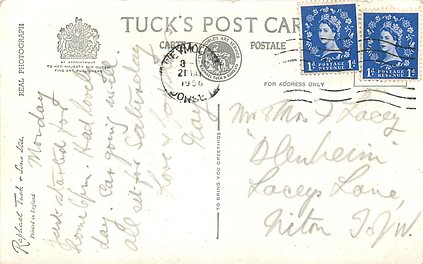 TUCK'S POST CARD
CARTE POSTALE
BY APPOINTMENT
TO HER MAJESTY THE QUEEN
FINE ART PUBLISHERS
REAL PHOTOGRAPH
FOR ADDRESS ONLY
WEYMOUTH
21 MAY
1956
DORSET
POSTAGE REVENUE
1D 1D
POSTAGE REVENUE
1D 1D
Monday
Just started our
home. Had lovely
day. Car going well
all set for Saturday
Love
TO BRING YOU GREETINGS
Raphael Tuck & Sons Ltd.
Printed in England
Mr & Mrs J Lacey
"Blenheim"
Laceys Lane,
Niton I.O.W.